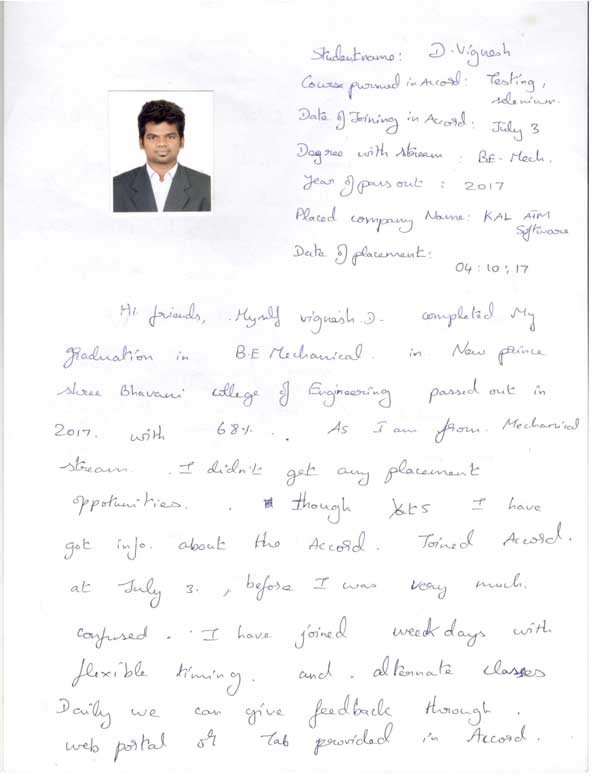 Student name: D. Vignesh
Course pursued in Accord: Testing,
selenium.
Date of Joining in Accord: July 3
Degree with stream : B.E - Mech.
Year of pass out : 2017
Placed company Name: KAL ATM
Software
Date of placement:
04.10.17
Hi friends, Myself Vignesh.D. completed My
graduation in B.E Mechanical. in New prince
shree Bhavani college of Engineering passed out in
2017. with 68%. . As I am from Mechanical
stream. I didn't get any placement
oppotunities. . though I have
got info. about the Accord. Joined Accord.
at July 3. , before I was very much.
confused. I have joined weekdays with
flexible timing. and. alternate classes
Daily we can give feedback through.
web portal or Tab provided in Accord.